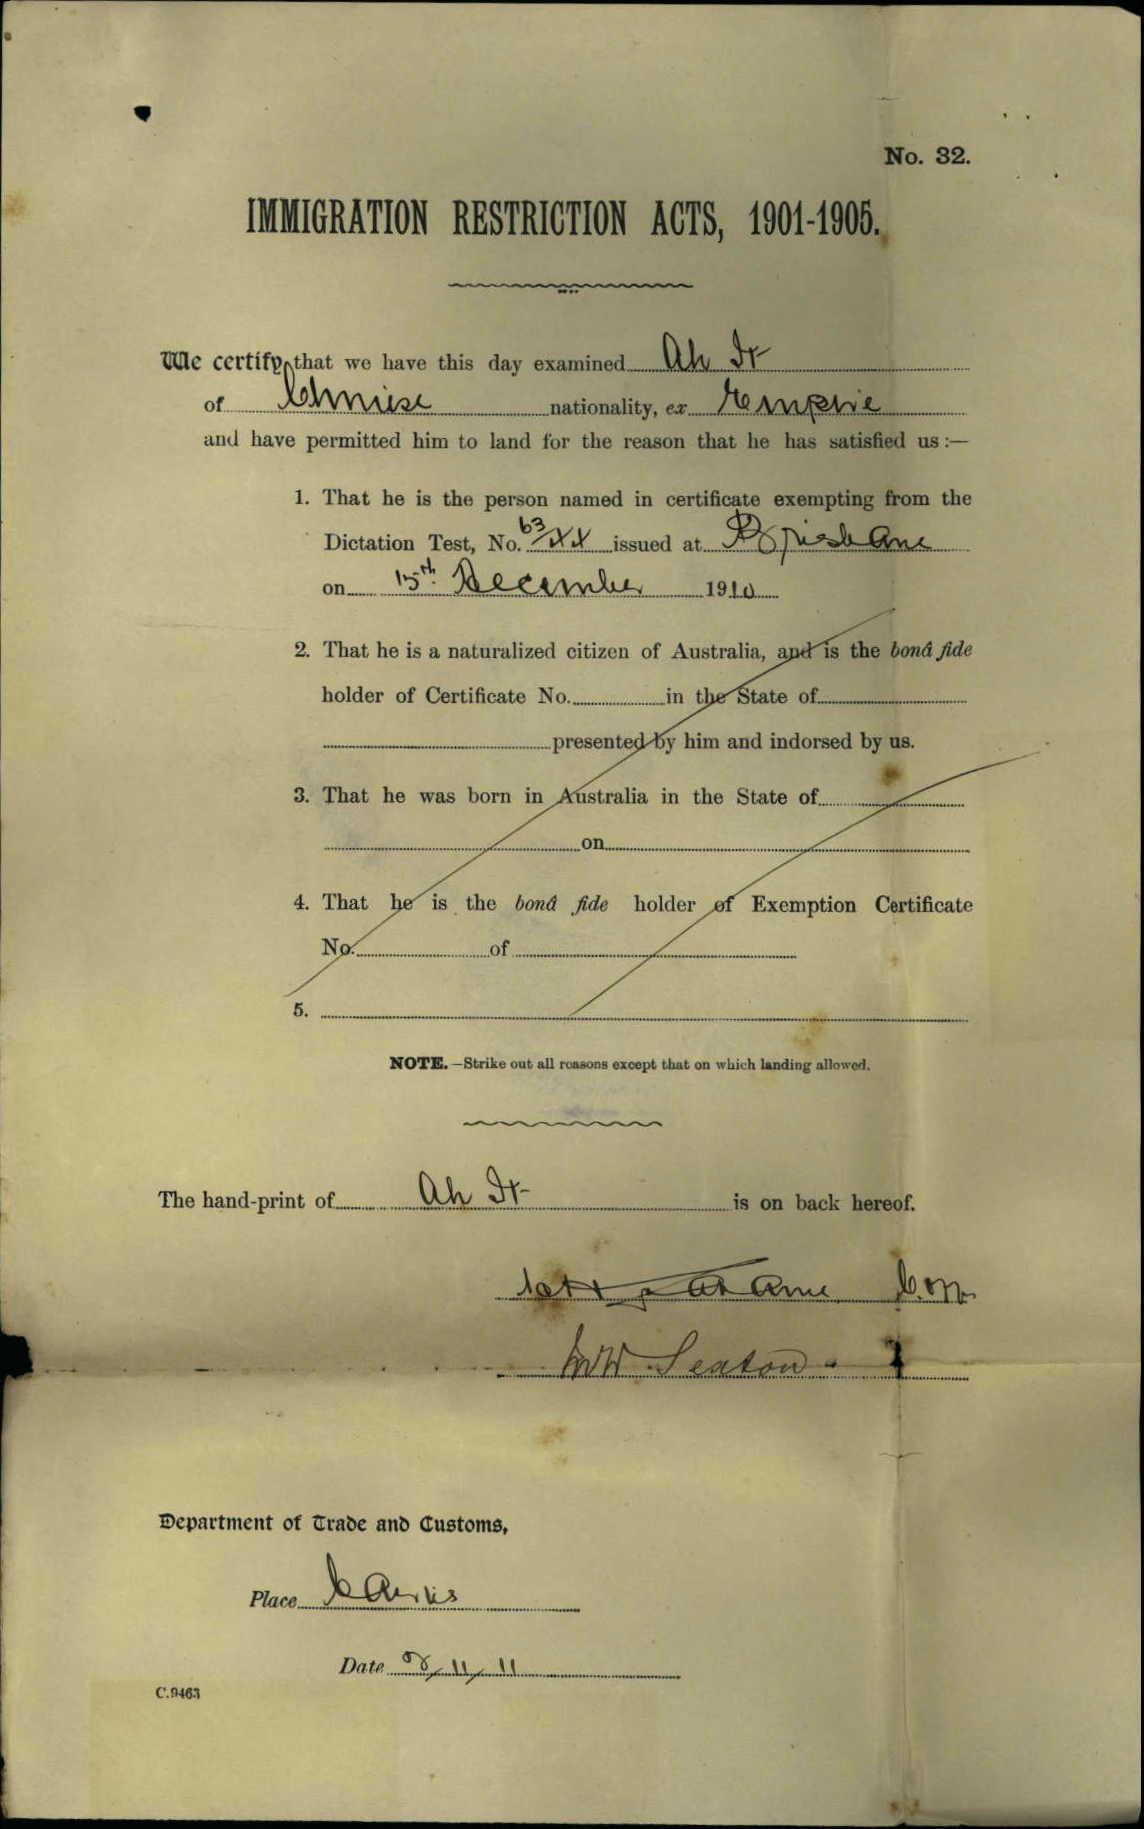 No. 32.
IMMIGRATION RESTRICTION ACTS, 1901-1905.
We certify that we have this day examined Ah It
of Chinese nationality, ex Empire
and have permitted him to land for the reason that he has satisfied us :—
1. That he is the person named in certificate exempting from the
Dictation Test, No. 63/XX issued at Brisbane
on 15th December 1910
2. That he is a naturalized citizen of Australia, and is the bonâ fide
holder of Certificate No. in the State of
presented by him and indorsed by us.
3. That he was born in Australia in the State of
on
4. That he is the bonâ fide holder of Exemption Certificate
No. of
5.
NOTE.—Strike out all reasons except that on which landing allowed.
The hand-print of Ah It is on back hereof.
Seaton
Department of Trade and Customs,
Place Cairns
Date 8/11/11
C.9463